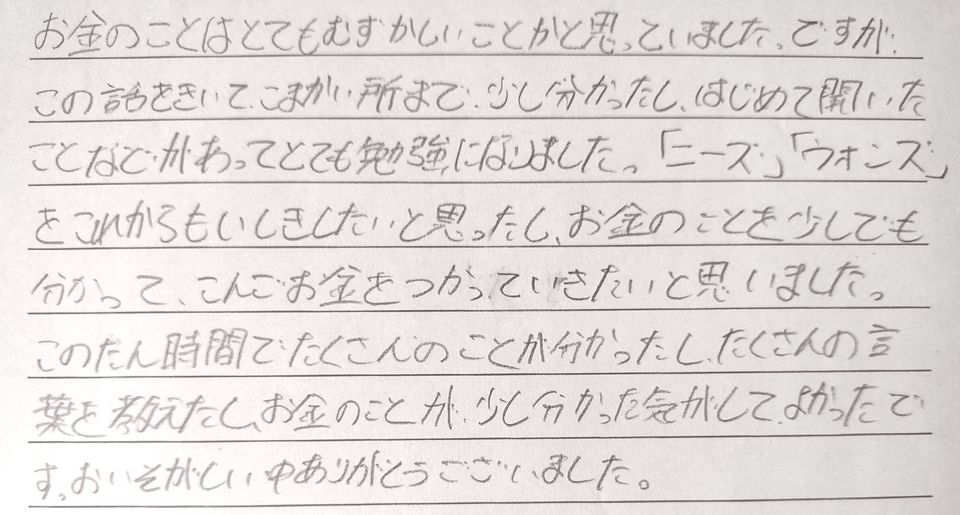 お金のことはとてもむずかしいことかと思っていました。ですが、
この話をきいて、こまかい所まで、少し分かったし、はじめて聞いた
ことなどがわってとても勉強になりました。「ニーズ」「ウォンズ」
をこれからもいしきしたいと思ったし、お金のことを少しでも
分かって、こんごお金をつかっていきたいと思いました。
このたん時間でたくさんのことが分かったし、たくさんの言
葉を教えたし、お金のことが、少し分かった気がして、よかったで
す。おいそがしい中ありがとうございました。